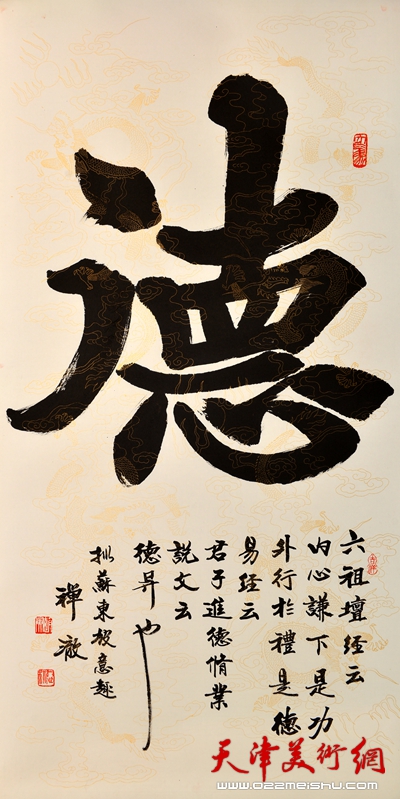 德
六祖壇經云
内心謙下是功
外行於禮是德
易經云
君子進德脩業
説文云
德昇也
拟蘇東坡意趣
禪徹
天津美術網
www.022meishu.com